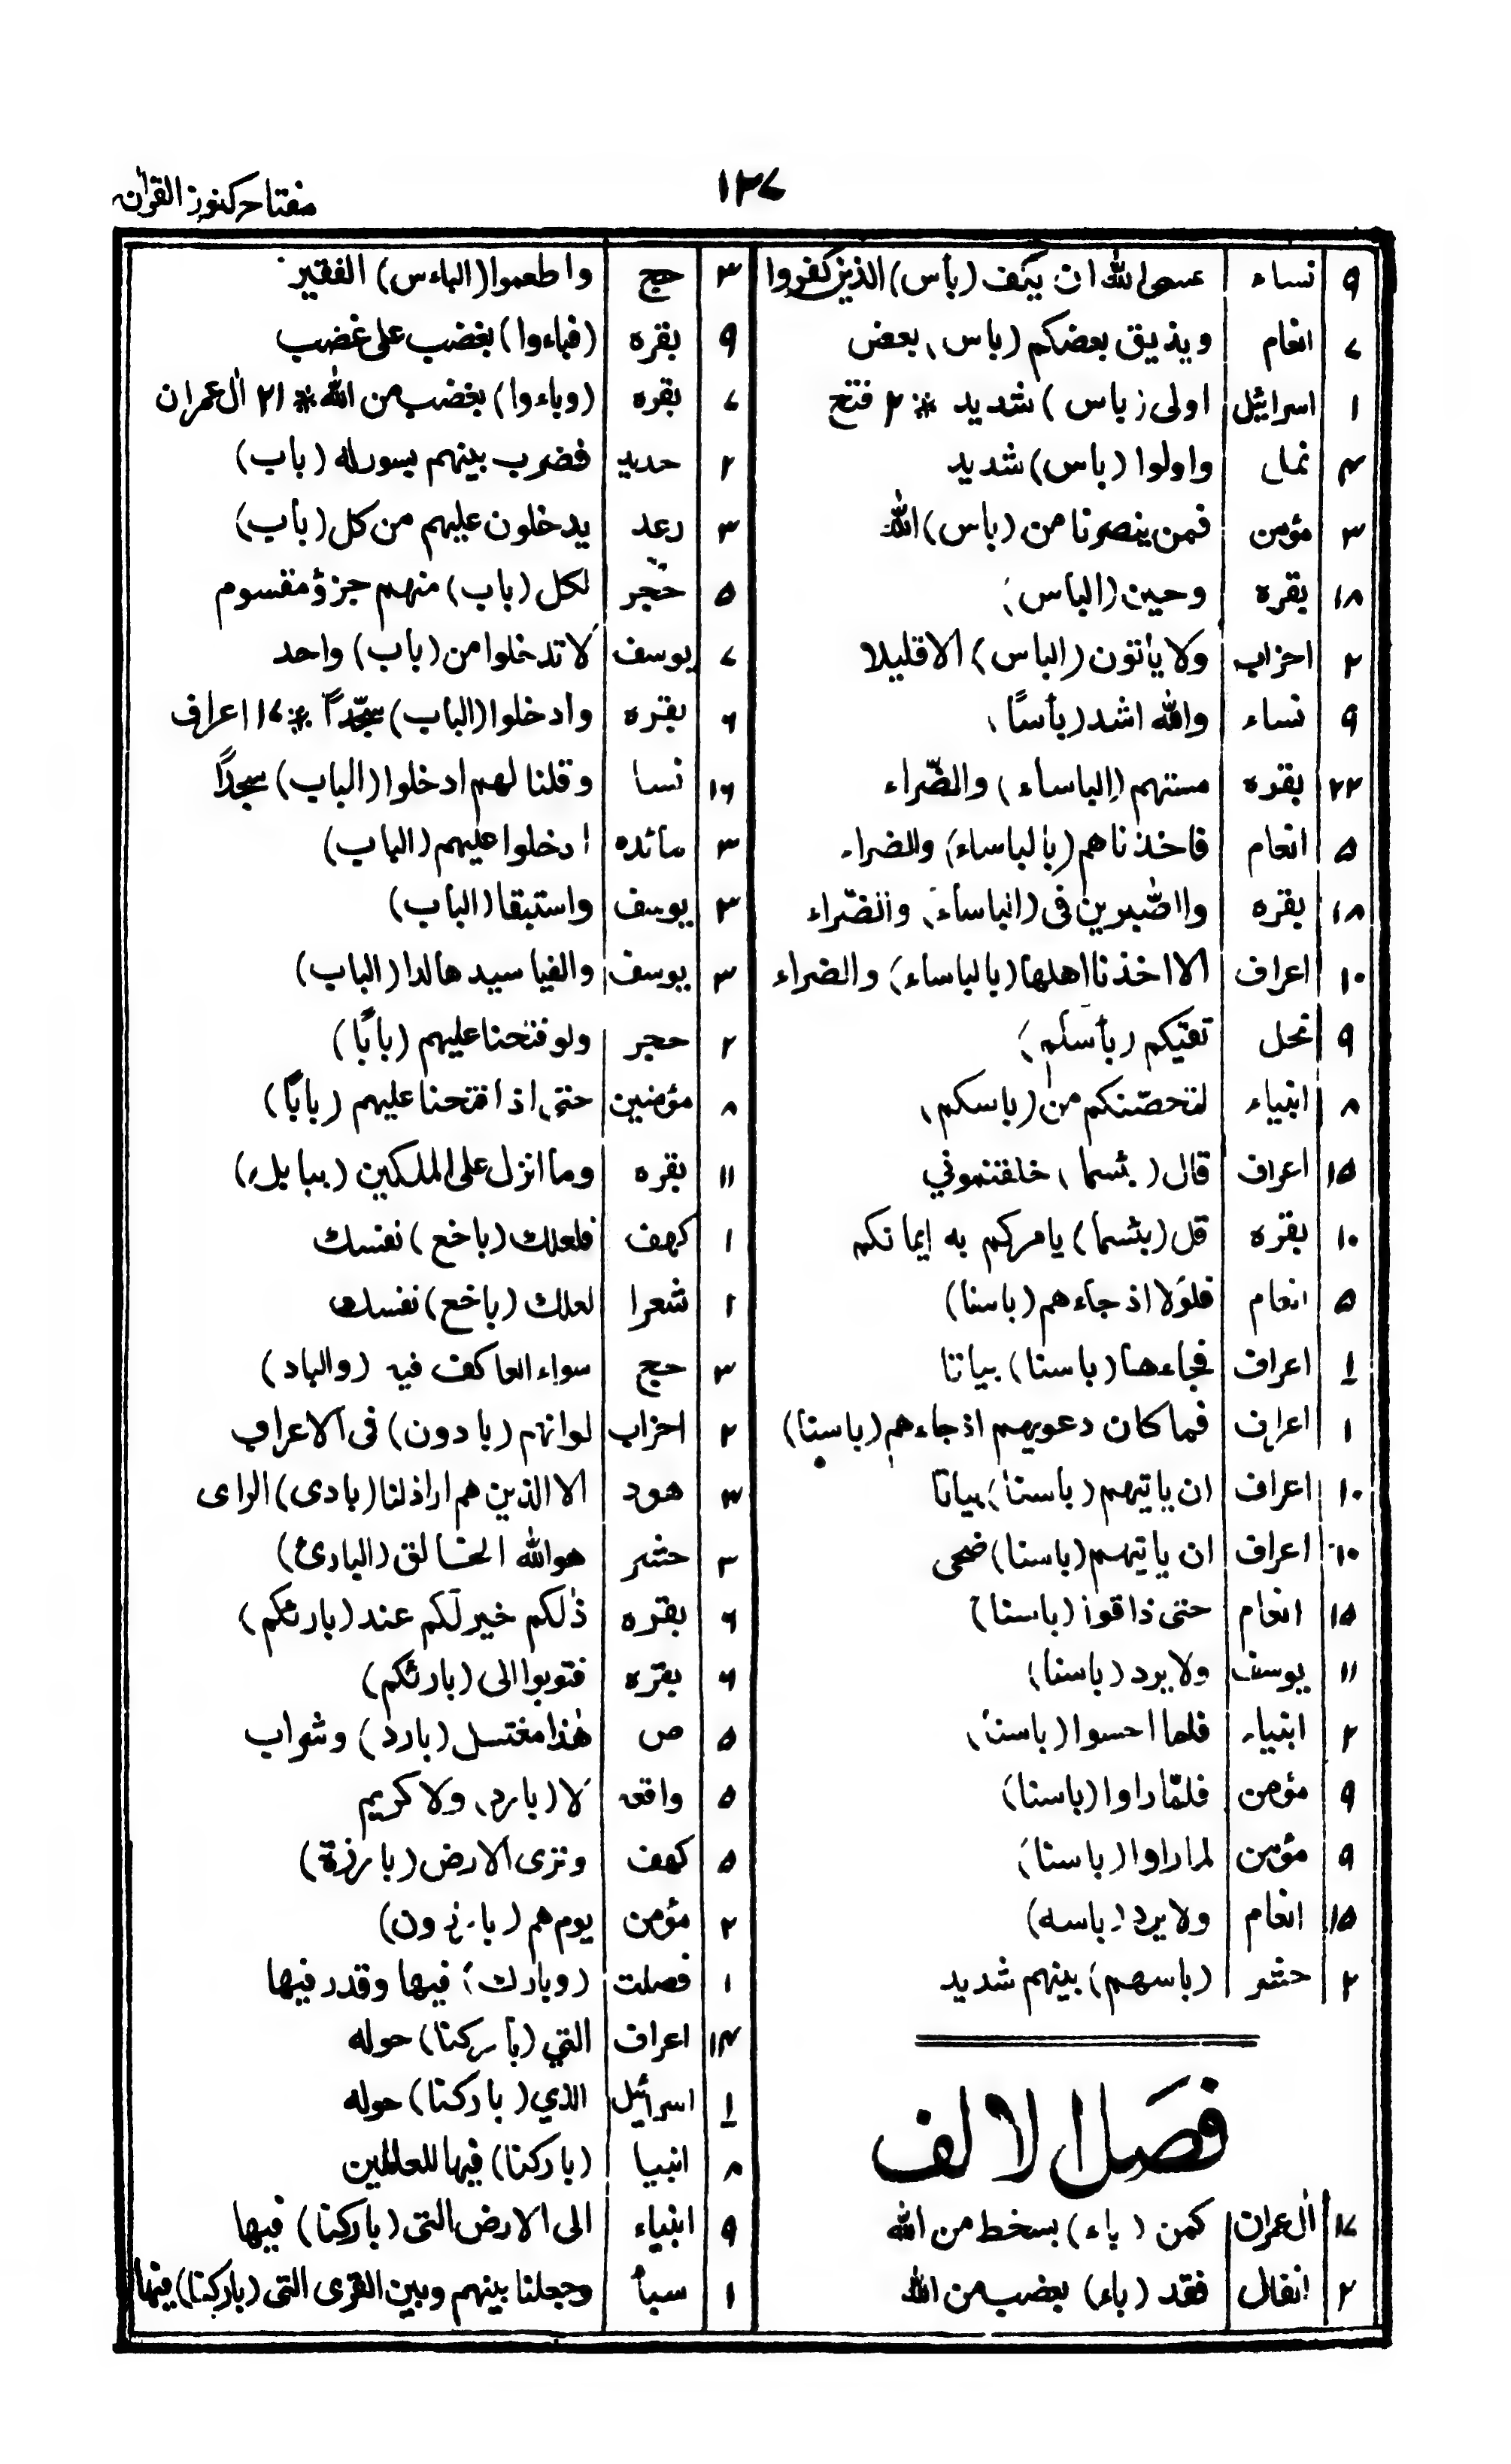 ١٢٧
مفتاح كنوز القرآن
٩ نساء عسى الله ان يكف (بأس) الذين كفروا
٧ انعام ويذيق بعضكم (باس) بعض
١ اسرائيل اولى (باس) شديد * ٢ فتح
٣ نمل واولوا (باس) شديد
٣ مؤمن فمن ينصرنا من (باس) الله
١٨ بقره وحين (الباس)
٢ احزاب ولا يأتون (الباس) الا قليلا
٩ نساء والله اشد (بأسًا)
٢٢ بقره مستهم (الباساء) والضّراء
٥ انعام فاخذناهم (بالباساء) والضراء
١٨ بقره والصّبرين فى (الباساء) والضّراء
١٠ اعراف الا اخذنا اهلها (بالباساء) والضراء
٩ نحل تقيكم (بأسكم)
٨ انبياء لتحصّنكم من (باسكم)
١٥ اعراف قال (بئسما) خلفتموني
١٠ بقره قل (بئسما) يامركم به ايمانكم
٥ انعام فلولا اذ جاءهم (باسنا)
١ اعراف فجاءها (باسنا) بياتا
١ اعراف فما كان دعويهم اذ جاءهم (باسنا)
١٠ اعراف ان ياتيهم (بأسنا) بياتا
١٠ اعراف ان ياتيهم (باسنا) ضحى
١٥ انعام حتى ذاقوا (باسنا)
١١ يوسف ولا يرد (باسنا)
٢ انبياء فلما احسوا (باسنا)
٩ مؤمن فلمّا راوا (باسنا)
٩ مؤمن لما راوا (باسنا)
١٥ انعام ولا يرد (باسه)
٢ حشر (باسهم) بينهم شديد
فصل الالف
١٧ اٰل عمران كمن (باء) بسخط من الله
٢ انفال فقد (باء) بغضب من الله
٣ حج واطعموا (الباءس) الفقير
٩ بقره (فباءوا) بغضب على غضب
٧ بقره (وباءوا) بغضب من الله * ٢١ اٰل عمران
٢ حديد فضرب بينهم بسور له (باب)
٣ رعد يدخلون عليهم من كل (باب)
٥ حجر لكل (باب) منهم جزؤ مقسوم
٧ يوسف لا تدخلوا من (باب) واحد
٦ بقره وادخلوا (الباب) سجّدًا * ١٧ اعراف
١٦ نسا وقلنا لهم ادخلوا (الباب) سجدًا
٣ مائده ادخلوا عليهم (الباب)
٣ يوسف واستبقا (الباب)
٣ يوسف والفيا سيدها لدا (الباب)
٢ حجر ولو فتحنا عليهم (بابًا)
٨ مؤمنين حتى اذا فتحنا عليهم (بابًا)
١١ بقره وما انزل على الملكين (ببابل)
١ كهف فلعلك (باخع) نفسك
١ شعرا لعلك (باخع) نفسك
٣ حج سواء العاكف فيه (والباد)
٢ احزاب لو انهم (بادون) فى الاعراب
٣ هود الا الذين هم اراذلنا (بادى) الراى
٣ حشر هو الله الخالق (البارئ)
٦ بقره ذٰلكم خير لكم عند (بارئكم)
٦ بقره فتوبوا الى (بارئكم)
٥ ص هٰذا مغتسل (بارد) وشراب
٥ واقعه لا (بارد) ولا كريم
٥ كهف وترى الارض (بارزة)
٢ مؤمن يوم هم (بارزون)
١ فصلت (وبارك) فيها وقدر فيها
١٣ اعراف التي (باركنا) حوله
١ اسرائيل الذي (باركنا) حوله
٨ انبيا (باركنا) فيها للعالمين
٩ انبياء الى الارض التى (باركنا) فيها
١ سبأ وجعلنا بينهم وبين القرى التى (باركنا) فيها